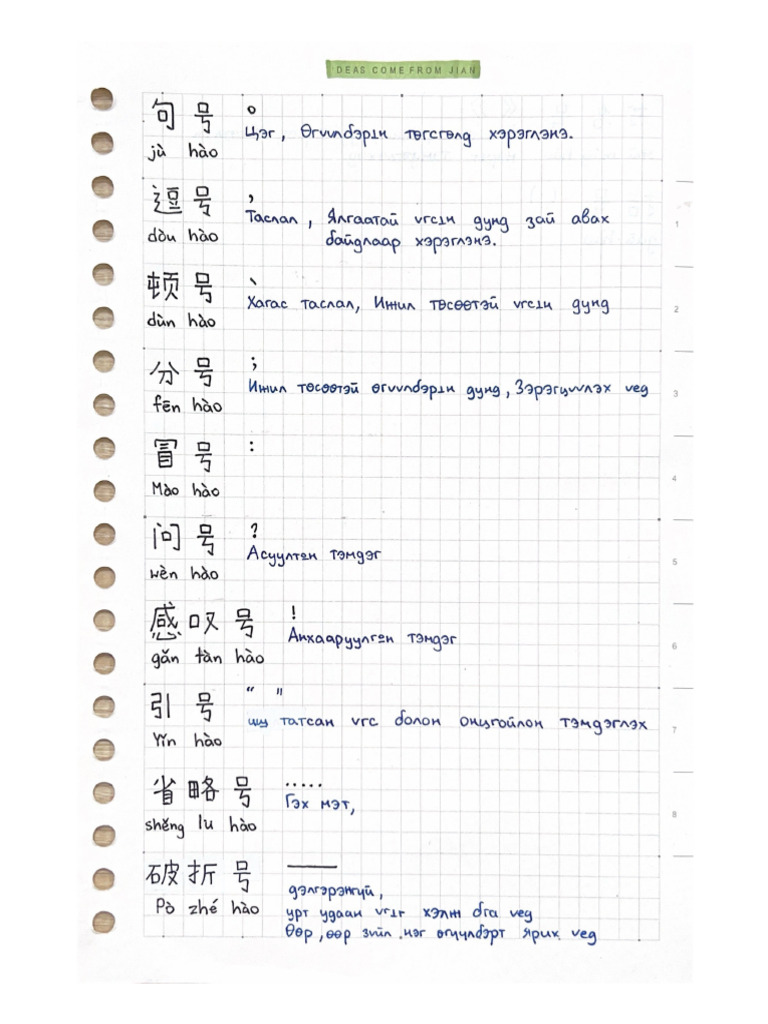 DEAS COME FROM JIAN
句 号 。
Цэг, Өгvvлбэрɪйн төгсгөлд хэрэглэнэ.
jù hào
逗 号 ,
Таслал, Ялгаатай vгсɪйн дунд зай авах
dòu hào
байдлаар хэрэглэнэ.
1
顿 号 、
Хагас таслал, Ижил төсөөтэй vгсɪйн дунд
dùn hào
2
分 号 ;
Ижил төсөөтэй өгvvлбэрɪйн дунд, Зэрэгцvvлэх vед
fēn hào
3
冒 号 :
Mào hào
4
问 号 ?
Асуултын тэмдэг
wèn hào
5
感 叹 号 !
Анхааруулгын тэмдэг
gǎn tàn hào
6
引 号 “ ”
иш татсан vгс болон онцгойлон тэмдэглэх
Yǐn hào
7
省 略 号 .....
Гэх мэт,
shěng lu hào
8
破 折 号 ——
дэлгэрэнгvй,
Pò zhé hào
урт удаан vгɪйг хэлж бга vед
Өөр, өөр зvйл нэг өгvvлбэрт ярих vед